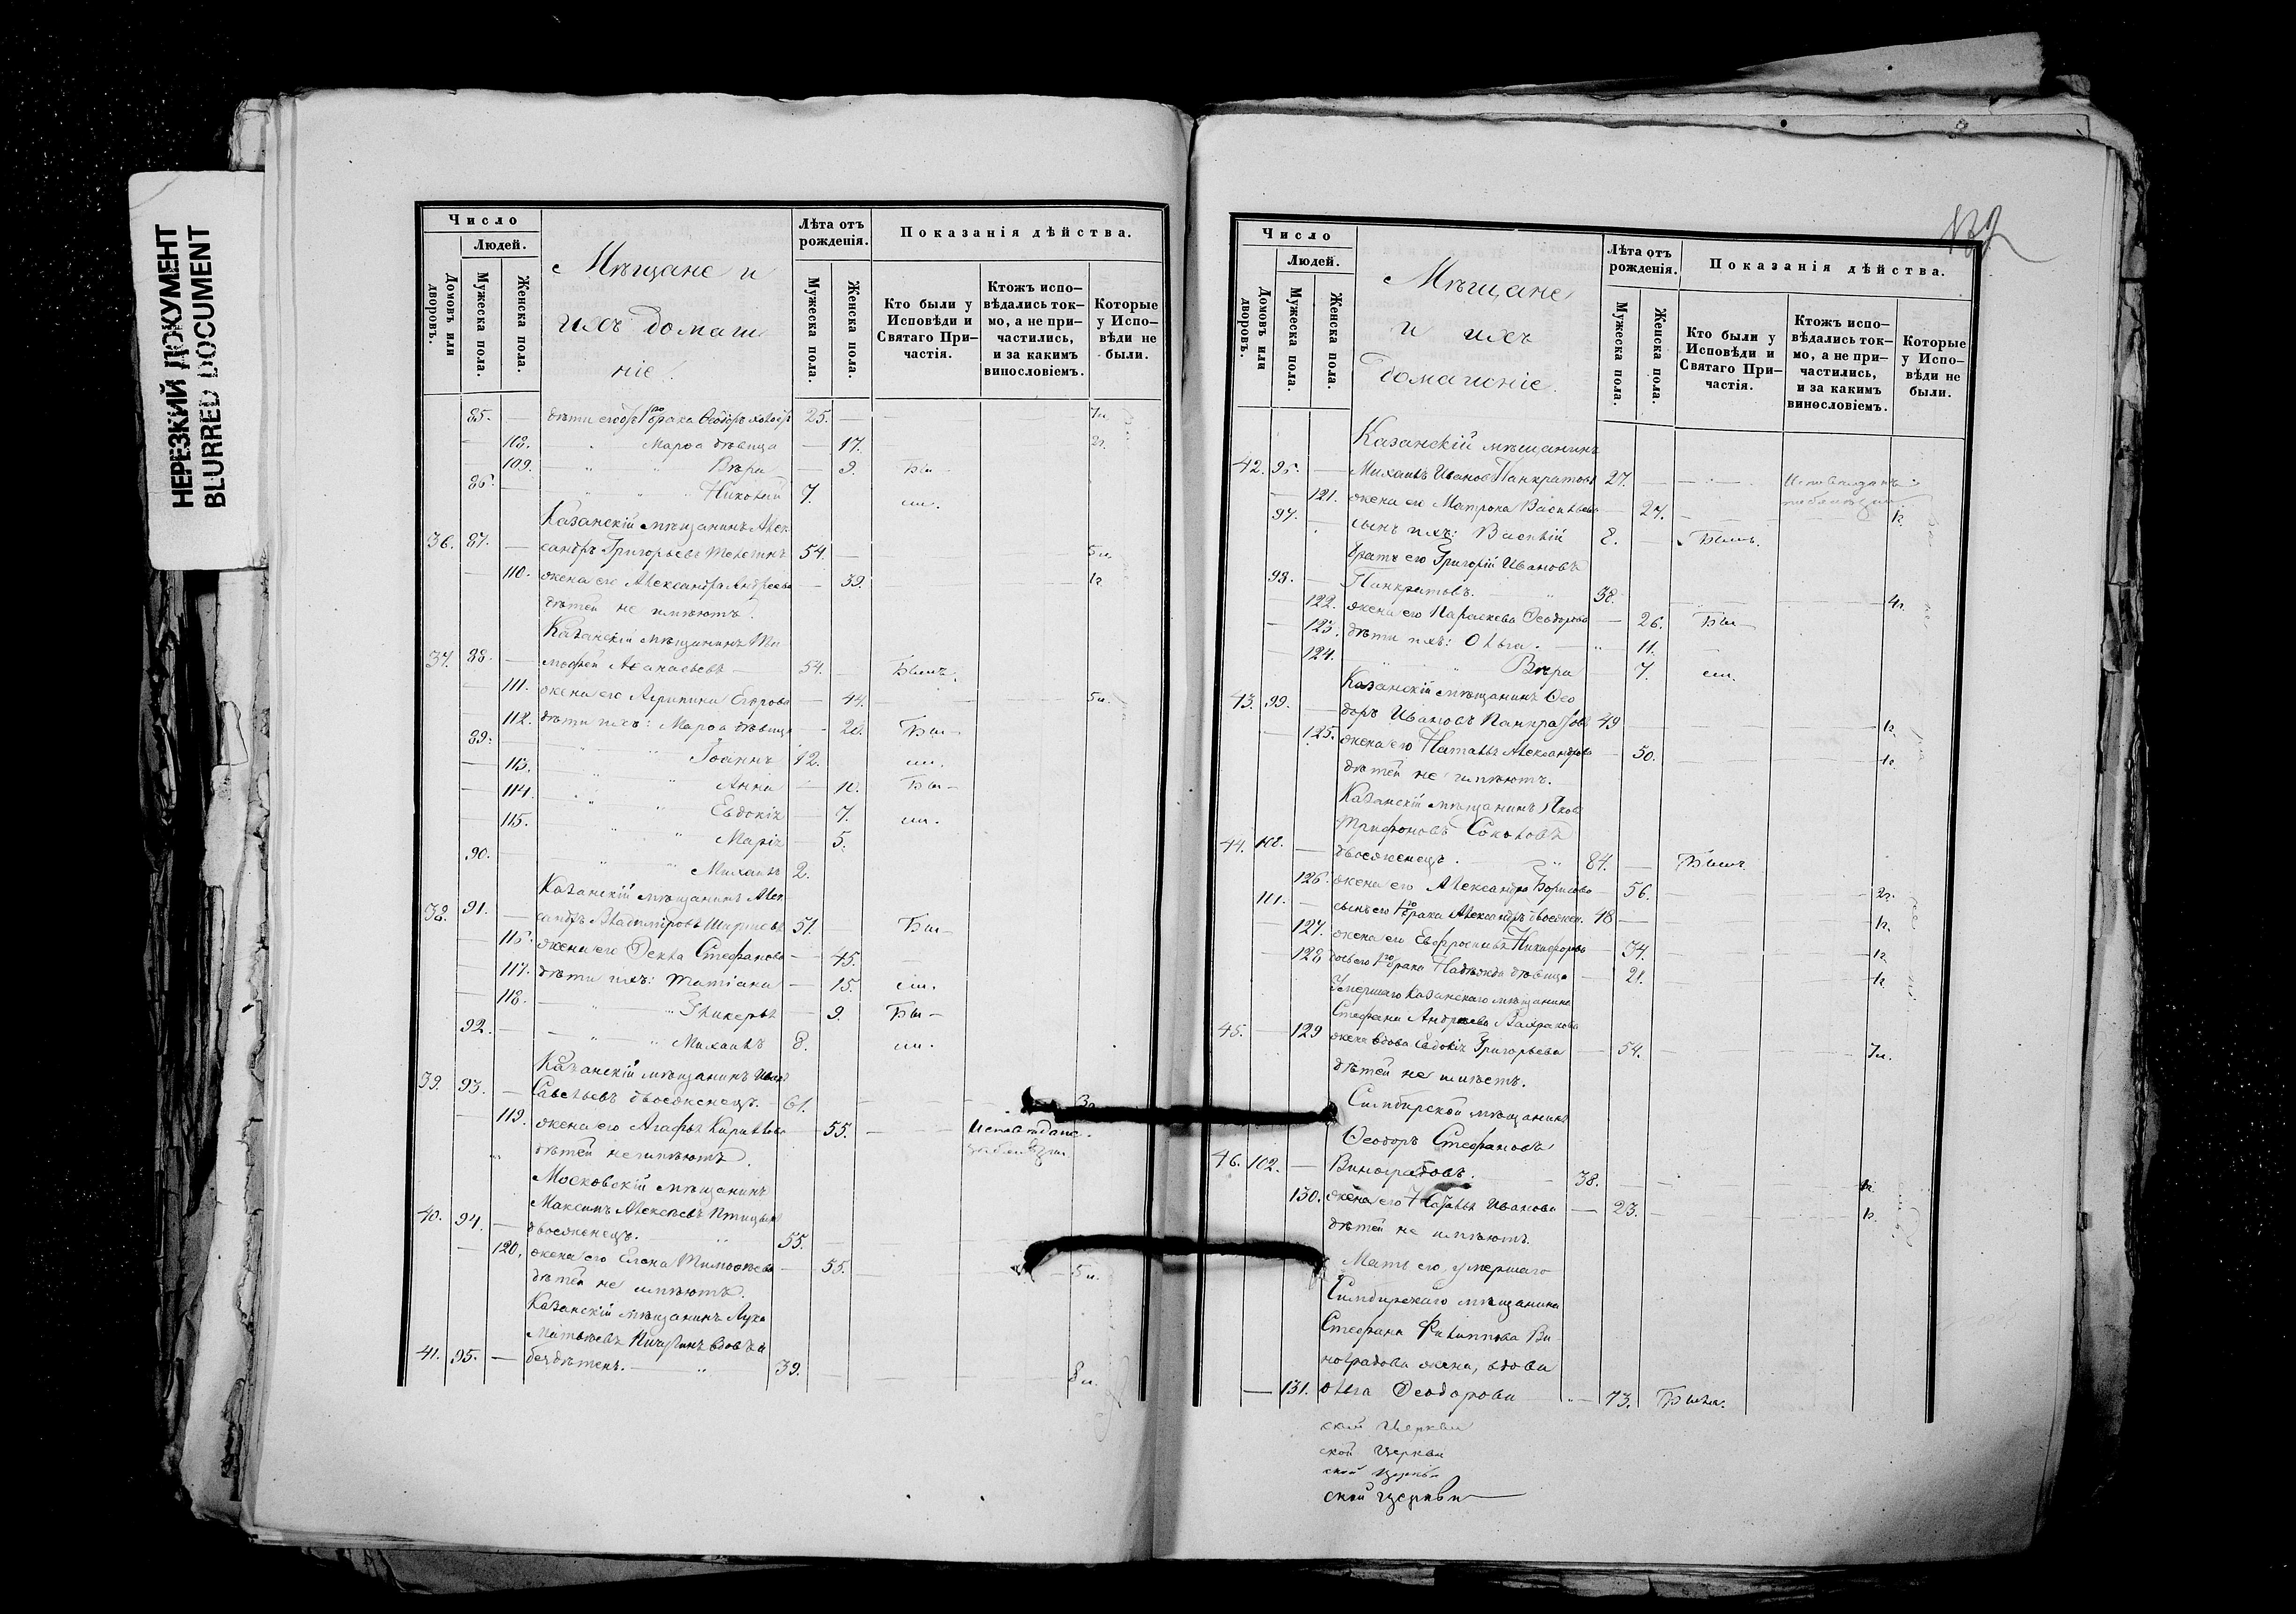 НЕРЕЗКИЙ ДОКУМЕНТ
BLURRED DOCUMENT
Число
Людей.
Домовъ или дворовъ.
Мужеска пола.
Женска пола.
Мѣщане и
ихъ домаш
ніе.
Лѣта отъ рожденія.
Мужеска пола.
Женска пола.
Показанія дѣйства.
Кто были у Исповѣди и Святаго При-частія.
Ктожъ испо-вѣдались ток-мо, а не при-частились, и за какимъ винословіемъ.
Которые у Испо-вѣди не были.
85. — дѣти его отъ 1го брака Ѳеодоръ 25. —
— 108. " Марѳа дѣвица — 17. 2г.
— 109. " " Вѣра — 9. Бы —
86. — " " Николай 7. ли.
Казанскій мѣщанинъ Алек
36. 87. — сандръ Григорьевъ 54. — 5 и.
— 110. жена его Александра Андреева — 39. 1г.
дѣтей не имѣютъ.
Казанскій мѣщанинъ Ти
37. 88. — моѳей Аѳанасьевъ 54. — Былъ.
— 111. жена его Агрипина Егорова — 44. 5и.
— 112. дѣти ихъ: Марѳа дѣвица — 20. Бы —
89. — " " Іоаннъ 12. ли.
— 113. " " Анна — 10. Бы —
— 114. " " Евдокія — 7. ли.
— 115. " " Марія — 5.
90. — " " Михаилъ 2.
Казанскій мѣщанинъ Алек
38. 91. — сандръ Владиміровъ 51. Бы —
— 116. жена его Ѳекла Стефанова — 45. —
— 117. дѣти ихъ: Татіана — 15. ли.
— 118. " Гликерья — 9. Бы —
92. — " " Михаилъ 8. ли.
Казанскій мѣщанинъ Иванъ
39. 93. — Савельевъ двоеженецъ. 61. —
— 119. жена его Агафья Кирилова — 55. —
дѣтей не имѣютъ.
Московскій мѣщанинъ
Максимъ Алексѣевъ Птицынъ
40. 94. — двоеженецъ. " 55. —
— 120. жена его Елена Тимоѳеева — 55. — 5 и.
дѣтей не имѣютъ.
Казанскій мѣщанинъ Лука
Матвѣевъ Пичугинъ вдовъ и
41. 95. — бездѣтенъ. " 39. — 8 и.
Число
Людей.
Домовъ или дворовъ.
Мужеска пола.
Женска пола.
Мѣщане
и ихъ
домашніе.
Лѣта отъ рожденія.
Мужеска пола.
Женска пола.
Показанія дѣйства.
Кто были у Исповѣди и Святаго При-частія.
Ктожъ испо-вѣдались ток-мо, а не при-частились, и за какимъ винословіемъ.
Которые у Испо-вѣди не были.
Казанскій мѣщанинъ
42. 96. — Михаилъ Ивановъ Панкратовъ 27.
— 121. жена его Матрона Васильева — 27. 1г.
97. сынъ ихъ: Василій 8. — Былъ.
братъ его Григорій Ивановъ
98. — Панкратовъ. " 38. 4г.
— 122. жена его Параскева Ѳеодорова — 26. Бы —
— 123. дѣти ихъ: Ольга. " 11. —
124. " " Вѣра 7. ли.
Казанскій мѣщанинъ Ѳео
43. 99. — доръ Ивановъ Панкратовъ 49 — 1г.
— 125. жена его Наталья Александрова — 50. 1г.
дѣтей не имѣютъ.
Казанскій мѣщанинъ Яковъ
Трифоновъ Соколовъ
44. 100. — двоеженецъ. " 84. — Былъ
126. жена его Александра Борисова — 56. 2г.
101. — сынъ его 1го брака Александръ двоежен. 48 — 1г.
— 127. жена его Евфросинья Никифорова — 34. 1г.
— 128 дочь его 1го брака Надежда дѣвица — 21. 1г.
Умершаго Казанскаго мѣщанина
Стефана Андреева
45. — 129 жена вдова Евдокія Григорьева — 54. 7и.
дѣтей не имѣетъ.
Симбирской мѣщанинъ
Ѳеодоръ Стефановъ
46. 102. — Виноградовъ. 38. — 1г.
130. жена его Наталья Иванова — 23. 1г.
дѣтей не имѣютъ.
Мать его, умершаго
Симбирскаго мѣщанина
Стефана Филиппова Ви-
ноградова жена, вдова
— 131. Ольга Ѳеодорова " — 73. Была.
ской Церкви
ской Церкви
ской Церкви
ской Церкви